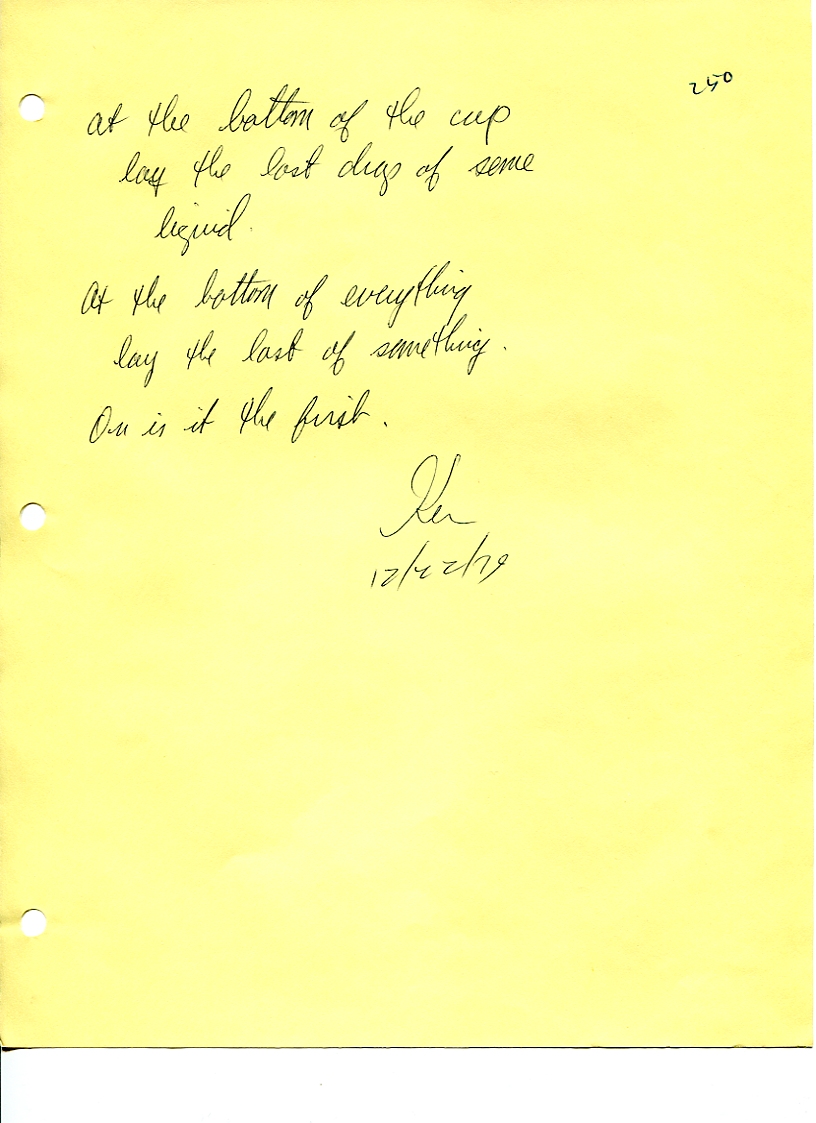 250
at the bottom of the cup
lay the last dregs of some
liquid.
At the bottom of everything
lay the last of something.
Or is it the first.
Ken
12/22/79